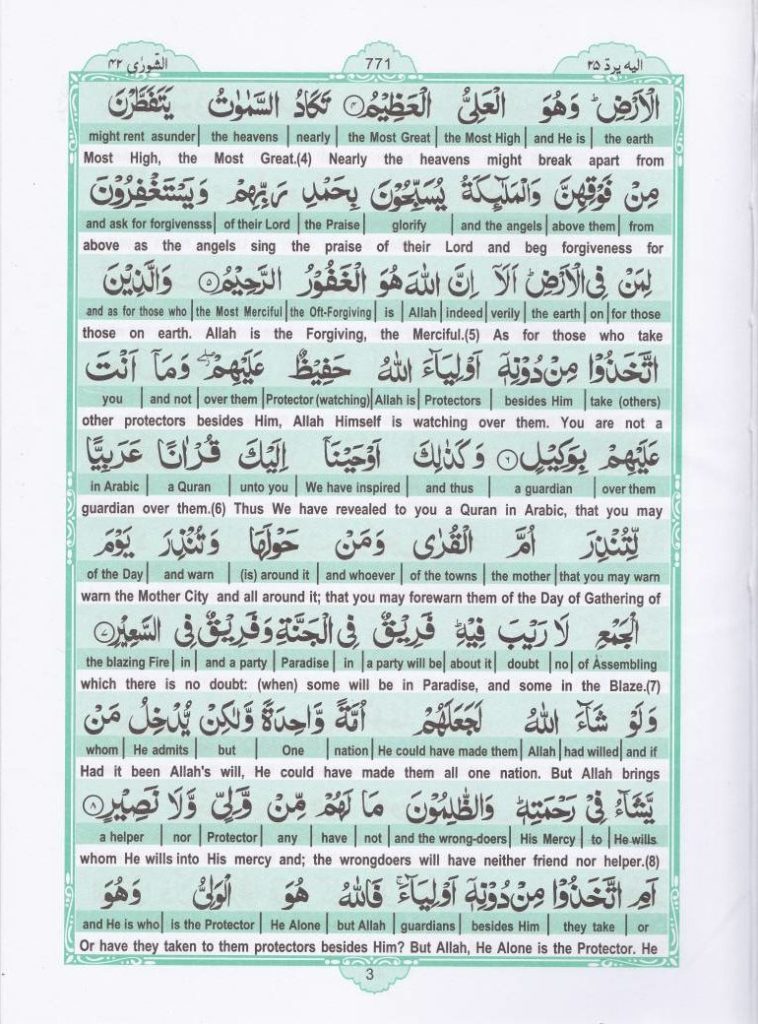 الشورٰی ۴۲ 771 الیہ یردّ ۲۵
الْاَرْضِ ؕ وَهُوَ الْعَلِیُّ الْعَظِیْمُ ۴ تَكَادُ السَّمٰوٰتُ یَتَفَطَّرْنَ
might rent asunder | the heavens | nearly | the Most Great | the Most High | and He is | the earth
Most High, the Most Great.(4) Nearly the heavens might break apart from
مِنْ فَوْقِهِنَّ وَالْمَلٰٓىِٕكَةُ یُسَبِّحُوْنَ بِحَمْدِ رَبِّهِمْ وَیَسْتَغْفِرُوْنَ
and ask for forgivensss | of their Lord | the Praise | glorify | and the angels | above them | from
above as the angels sing the praise of their Lord and beg forgiveness for
لِمَنْ فِی الْاَرْضِ ؕ اَلَاۤ اِنَّ اللّٰهَ هُوَ الْغَفُوْرُ الرَّحِیْمُ ۵ وَالَّذِیْنَ
and as for those who | the Most Merciful | the Oft-Forgiving | is | Allah | indeed | verily | the earth | on | for those
those on earth. Allah is the Forgiving, the Merciful.(5) As for those who take
اتَّخَذُوْا مِنْ دُوْنِهٖۤ اَوْلِیَآءَ اللّٰهُ حَفِیْظٌ عَلَیْهِمْ ۖ وَمَاۤ اَنْتَ
you | and not | over them | Protector (watching) | Allah is | Protectors | besides Him | take (others)
other protectors besides Him, Allah Himself is watching over them. You are not a
عَلَیْهِمْ بِوَكِیْلٍ ۶ وَكَذٰلِكَ اَوْحَیْنَاۤ اِلَیْكَ قُرْاٰنًا عَرَبِیًّا
in Arabic | a Quran | unto you | We have inspired | and thus | a guardian | over them
guardian over them.(6) Thus We have revealed to you a Quran in Arabic, that you may
لِّتُنْذِرَ اُمَّ الْقُرٰی وَمَنْ حَوْلَهَا وَتُنْذِرَ یَوْمَ
of the Day | and warn | (is) around it | and whoever | of the towns | the mother | that you may warn
warn the Mother City and all around it; that you may forewarn them of the Day of Gathering of
الْجَمْعِ لَا رَیْبَ فِیْهِ ؕ فَرِیْقٌ فِی الْجَنَّةِ وَفَرِیْقٌ فِی السَّعِیْرِ ۷
the blazing Fire | in | and a party | Paradise | in | a party will be | about it | doubt | no | of Assembling
which there is no doubt: (when) some will be in Paradise, and some in the Blaze.(7)
وَلَوْ شَآءَ اللّٰهُ لَجَعَلَهُمْ اُمَّةً وَّاحِدَةً وَّلٰكِنْ یُّدْخِلُ مَنْ
whom | He admits | but | One | nation | He could have made them | Allah | had willed | and if
Had it been Allah's will, He could have made them all one nation. But Allah brings
یَّشَآءُ فِیْ رَحْمَتِهٖ ؕ وَالظّٰلِمُوْنَ مَا لَهُمْ مِّنْ وَّلِیٍّ وَّلَا نَصِیْرٍ ۸
a helper | nor | Protector | any | have | not | and the wrong-doers | His Mercy | to | He wills
whom He wills into His mercy and; the wrongdoers will have neither friend nor helper.(8)
اَمِ اتَّخَذُوْا مِنْ دُوْنِهٖۤ اَوْلِیَآءَ ۚ فَاللّٰهُ هُوَ الْوَلِیُّ وَهُوَ
and He is who | is the Protector | He Alone | but Allah | guardians | besides Him | they take | or
Or have they taken to them protectors besides Him? But Allah, He Alone is the Protector. He
3